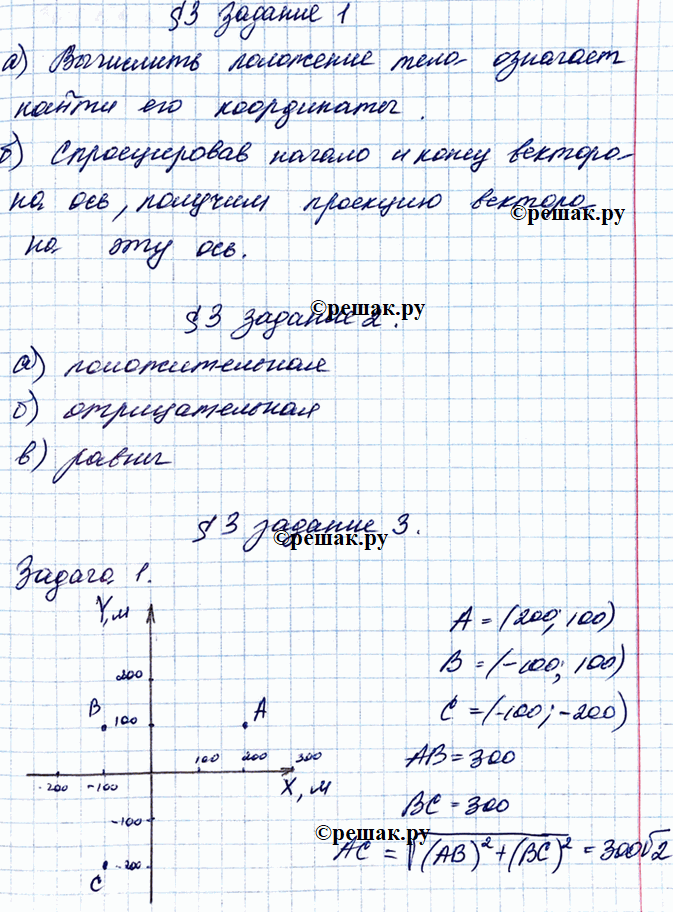 §3 Задание 1
а) Вычислить положение тела означает
найти его координаты.
б) Спроецировав начало и конец вектора
на ось, получим проекцию вектора
©решак.ру
на эту ось.
©решак.ру
§3 задание 2.
а) положительная
б) отрицательная
в) равны
§3 задание 3.
©решак.ру
Задача 1.
Y,м
A = (200; 100)
200
B = (-100; 100)
B 100 A
C = (-100; -200)
100 200 300
AB = 300
-200 -100 X, м
BC = 300
-100
©решак.ру
AC = √(AB)²+(BC)² = 300√2
-200
C